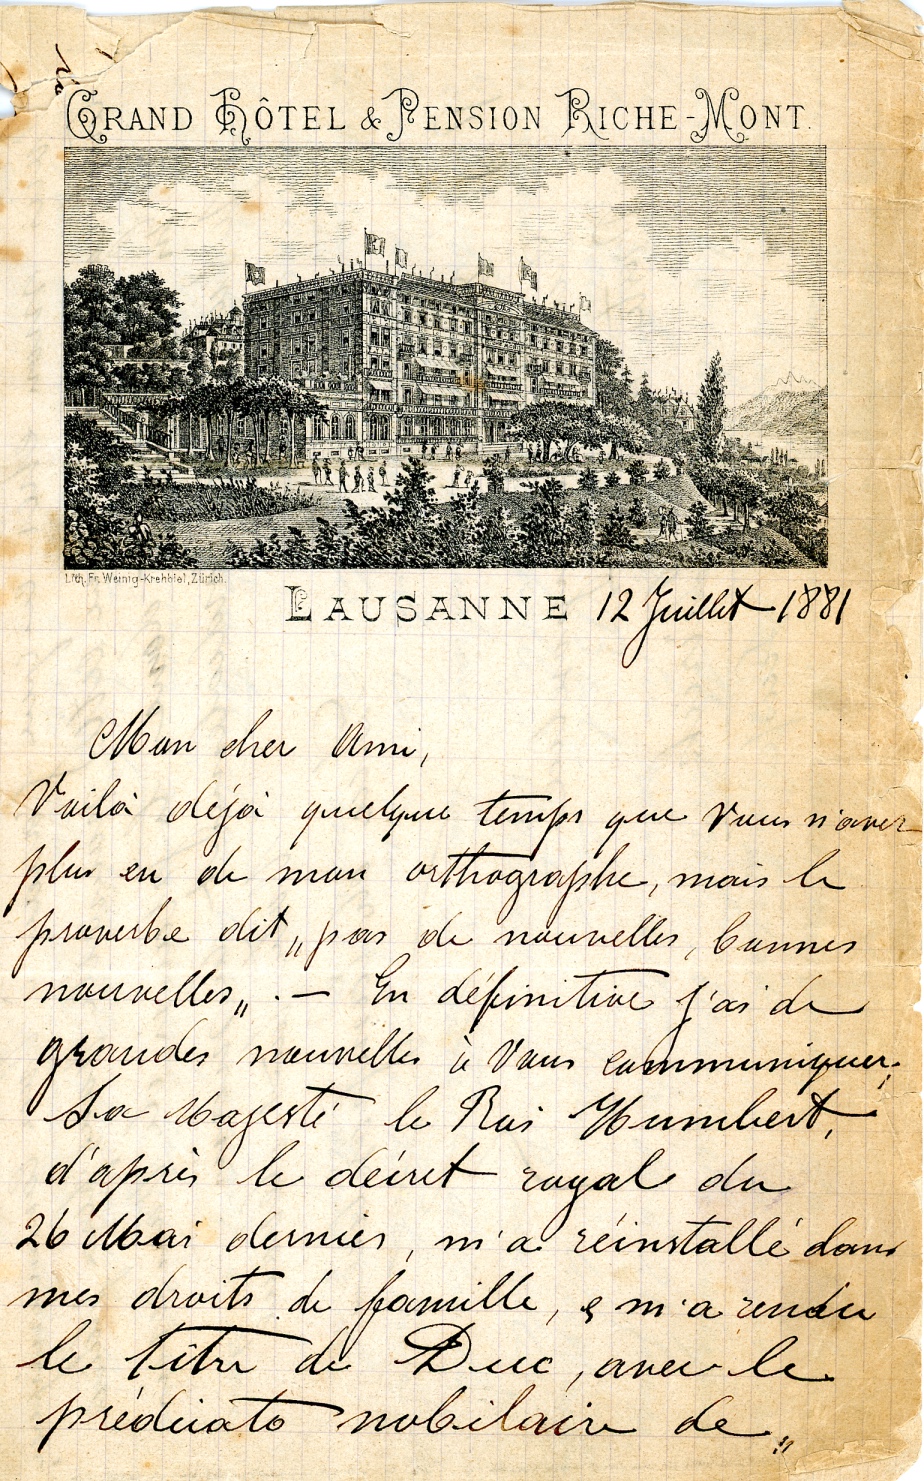 GRAND HÔTEL & PENSION RICHE-MONT.
Lith. Fr. Weinig-Krehbiel, Zürich.
LAUSANNE 12 Juillet 1881
Mon cher Ami,
Voilà déjà quelque temps que Vous n'avez
plus eu de mon orthographe, mais le
proverbe dit „pas de nouvelles, bonnes
nouvelles„. — En définitive j'ai de
grandes nouvelles à Vous communiquer;
Sa Majesté le Roi Humbert,
d'après le décret royal du
26 Mai dernier, m'a réinstallé dans
mes droits de famille, e m'a rendu
le titre de Duc, avec le
prédicato nobilaire de „